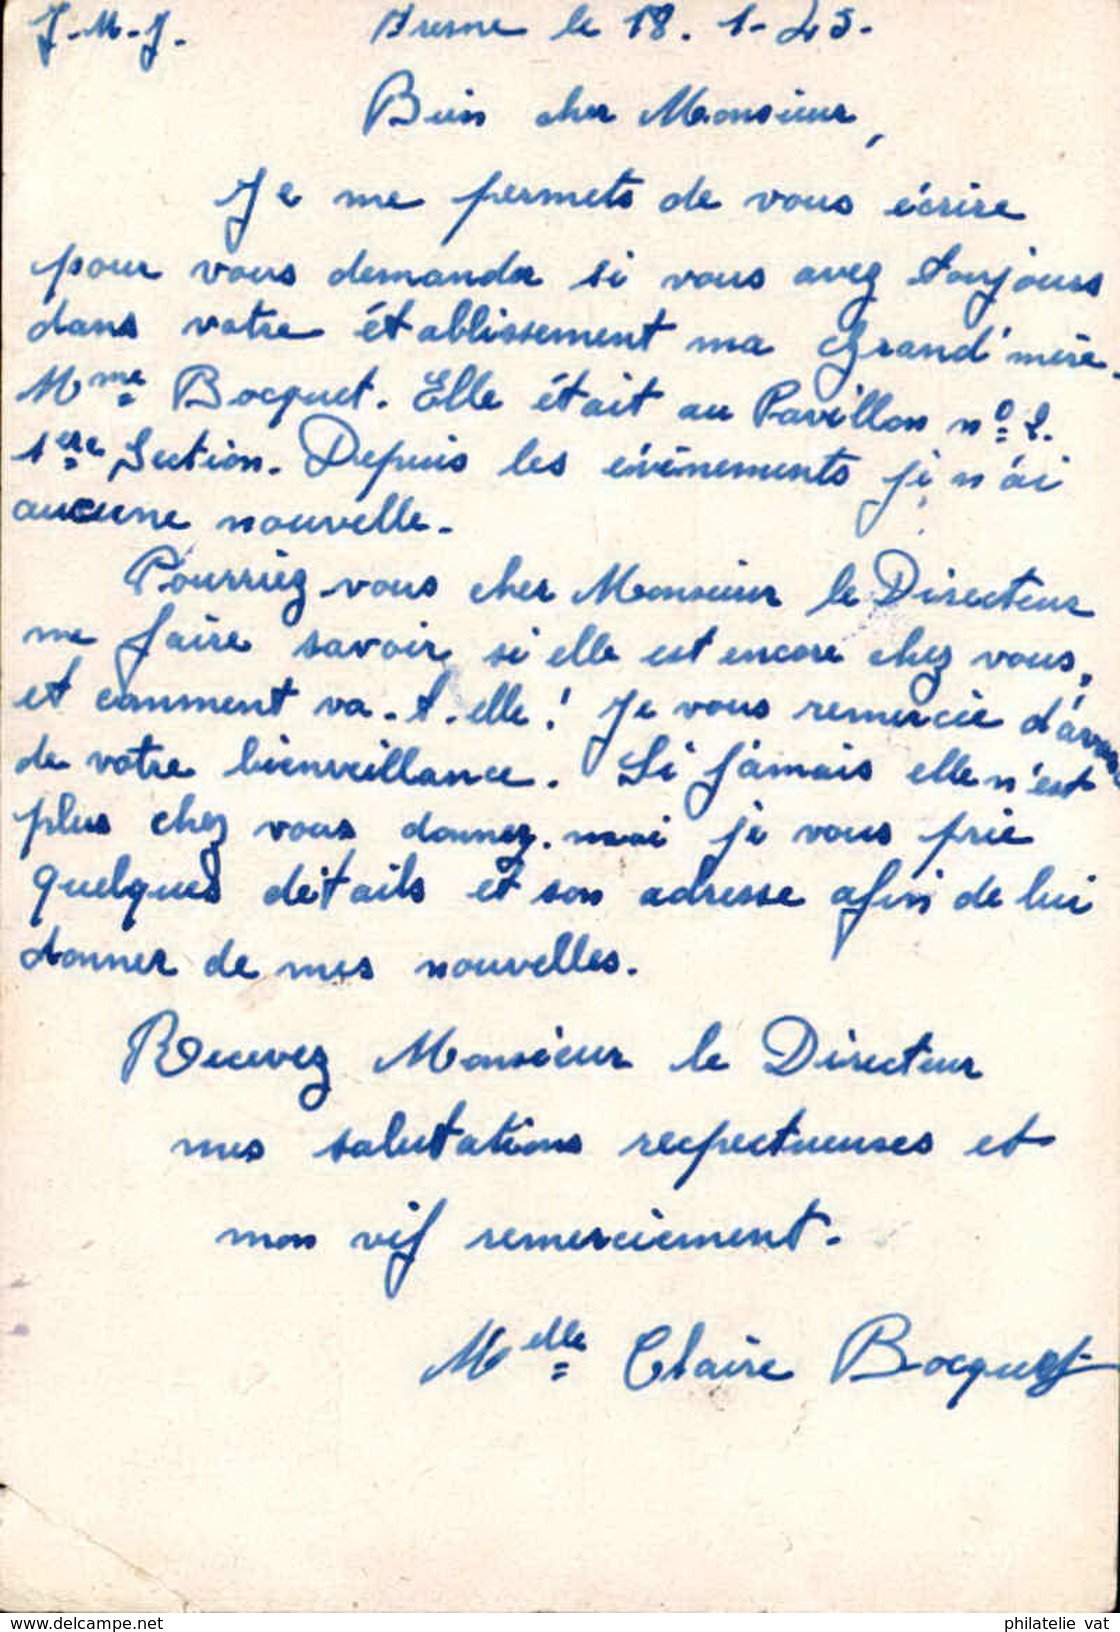 J.M.J. Fresne le 18.1-25.
Bien cher Monsieur,
Je me permets de vous écrire
pour vous demander si vous avez toujours
dans votre établissement ma Grand'mère.
Mme Bocquet. Elle était au Pavillon nº 2.
1ere Section. Depuis les événements je n'ai
aucune nouvelle.
Pourriez vous cher Monsieur le Directeur
me faire savoir si elle est encore chez vous,
et comment va-t-elle! Je vous remercie d'avance
de votre bienveillance. Si jamais elle n'est
plus chez vous donnez-moi je vous prie
quelques détails et son adresse afin de lui
donner de mes nouvelles.
Recevez Monsieur le Directeur
mes salutations recpectueuses et
mon vif remerciement.
Melle Claire Bocquet
www.delcampe.net philatelie vat